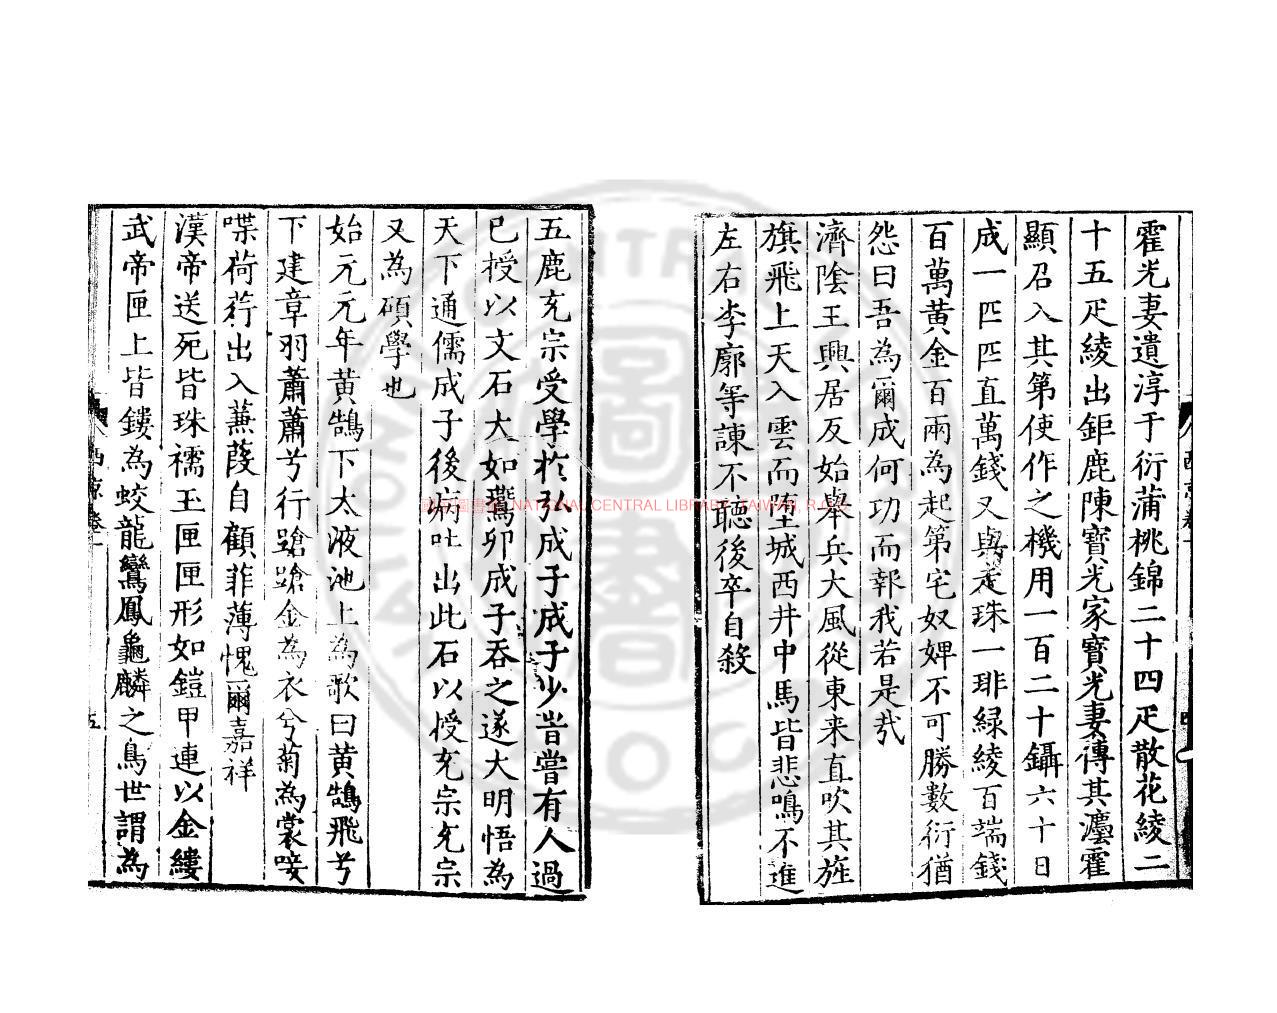 霍光妻遺淳于衍蒲桃錦二十四疋散花綾二
十五疋綾出鉅鹿陳寶光家寶光妻傳其灋霍
顯召入其第使作之機用一百二十鑷六十日
成一匹匹直萬錢又與走珠一琲綠綾百端錢
百萬黃金百兩為起第宅奴婢不可勝數衍猶
怨曰吾為爾成何功而報我若是哉
濟陰王興居反始舉兵大風從東来直吹其旌
旗飛上天入雲而墮城西井中馬皆悲鳴不進
左右李廓等諫不聽後卒自殺
五鹿充宗受學於弘成子成子少峕嘗有人過
已授以文石大如鷰卵成子吞之遂大明悟為
天下通儒成子後病吐出此石以授充宗充宗
又為碩學也
始元元年黃鵠下太液池上為歌曰黃鵠飛兮
下建章羽蕭蕭兮行蹌蹌金為衣兮菊為裳唼
喋荷荇出入蒹葭自顧菲薄愧爾嘉祥
漢帝送死皆珠襦玉匣匣形如鎧甲連以金縷
武帝匣上皆鏤為蛟龍鸞鳳龜麟之象世謂為
西京卷一
五
國家圖書館 NATIONAL CENTRAL LIBRARY, TAIWAN, R.O.C